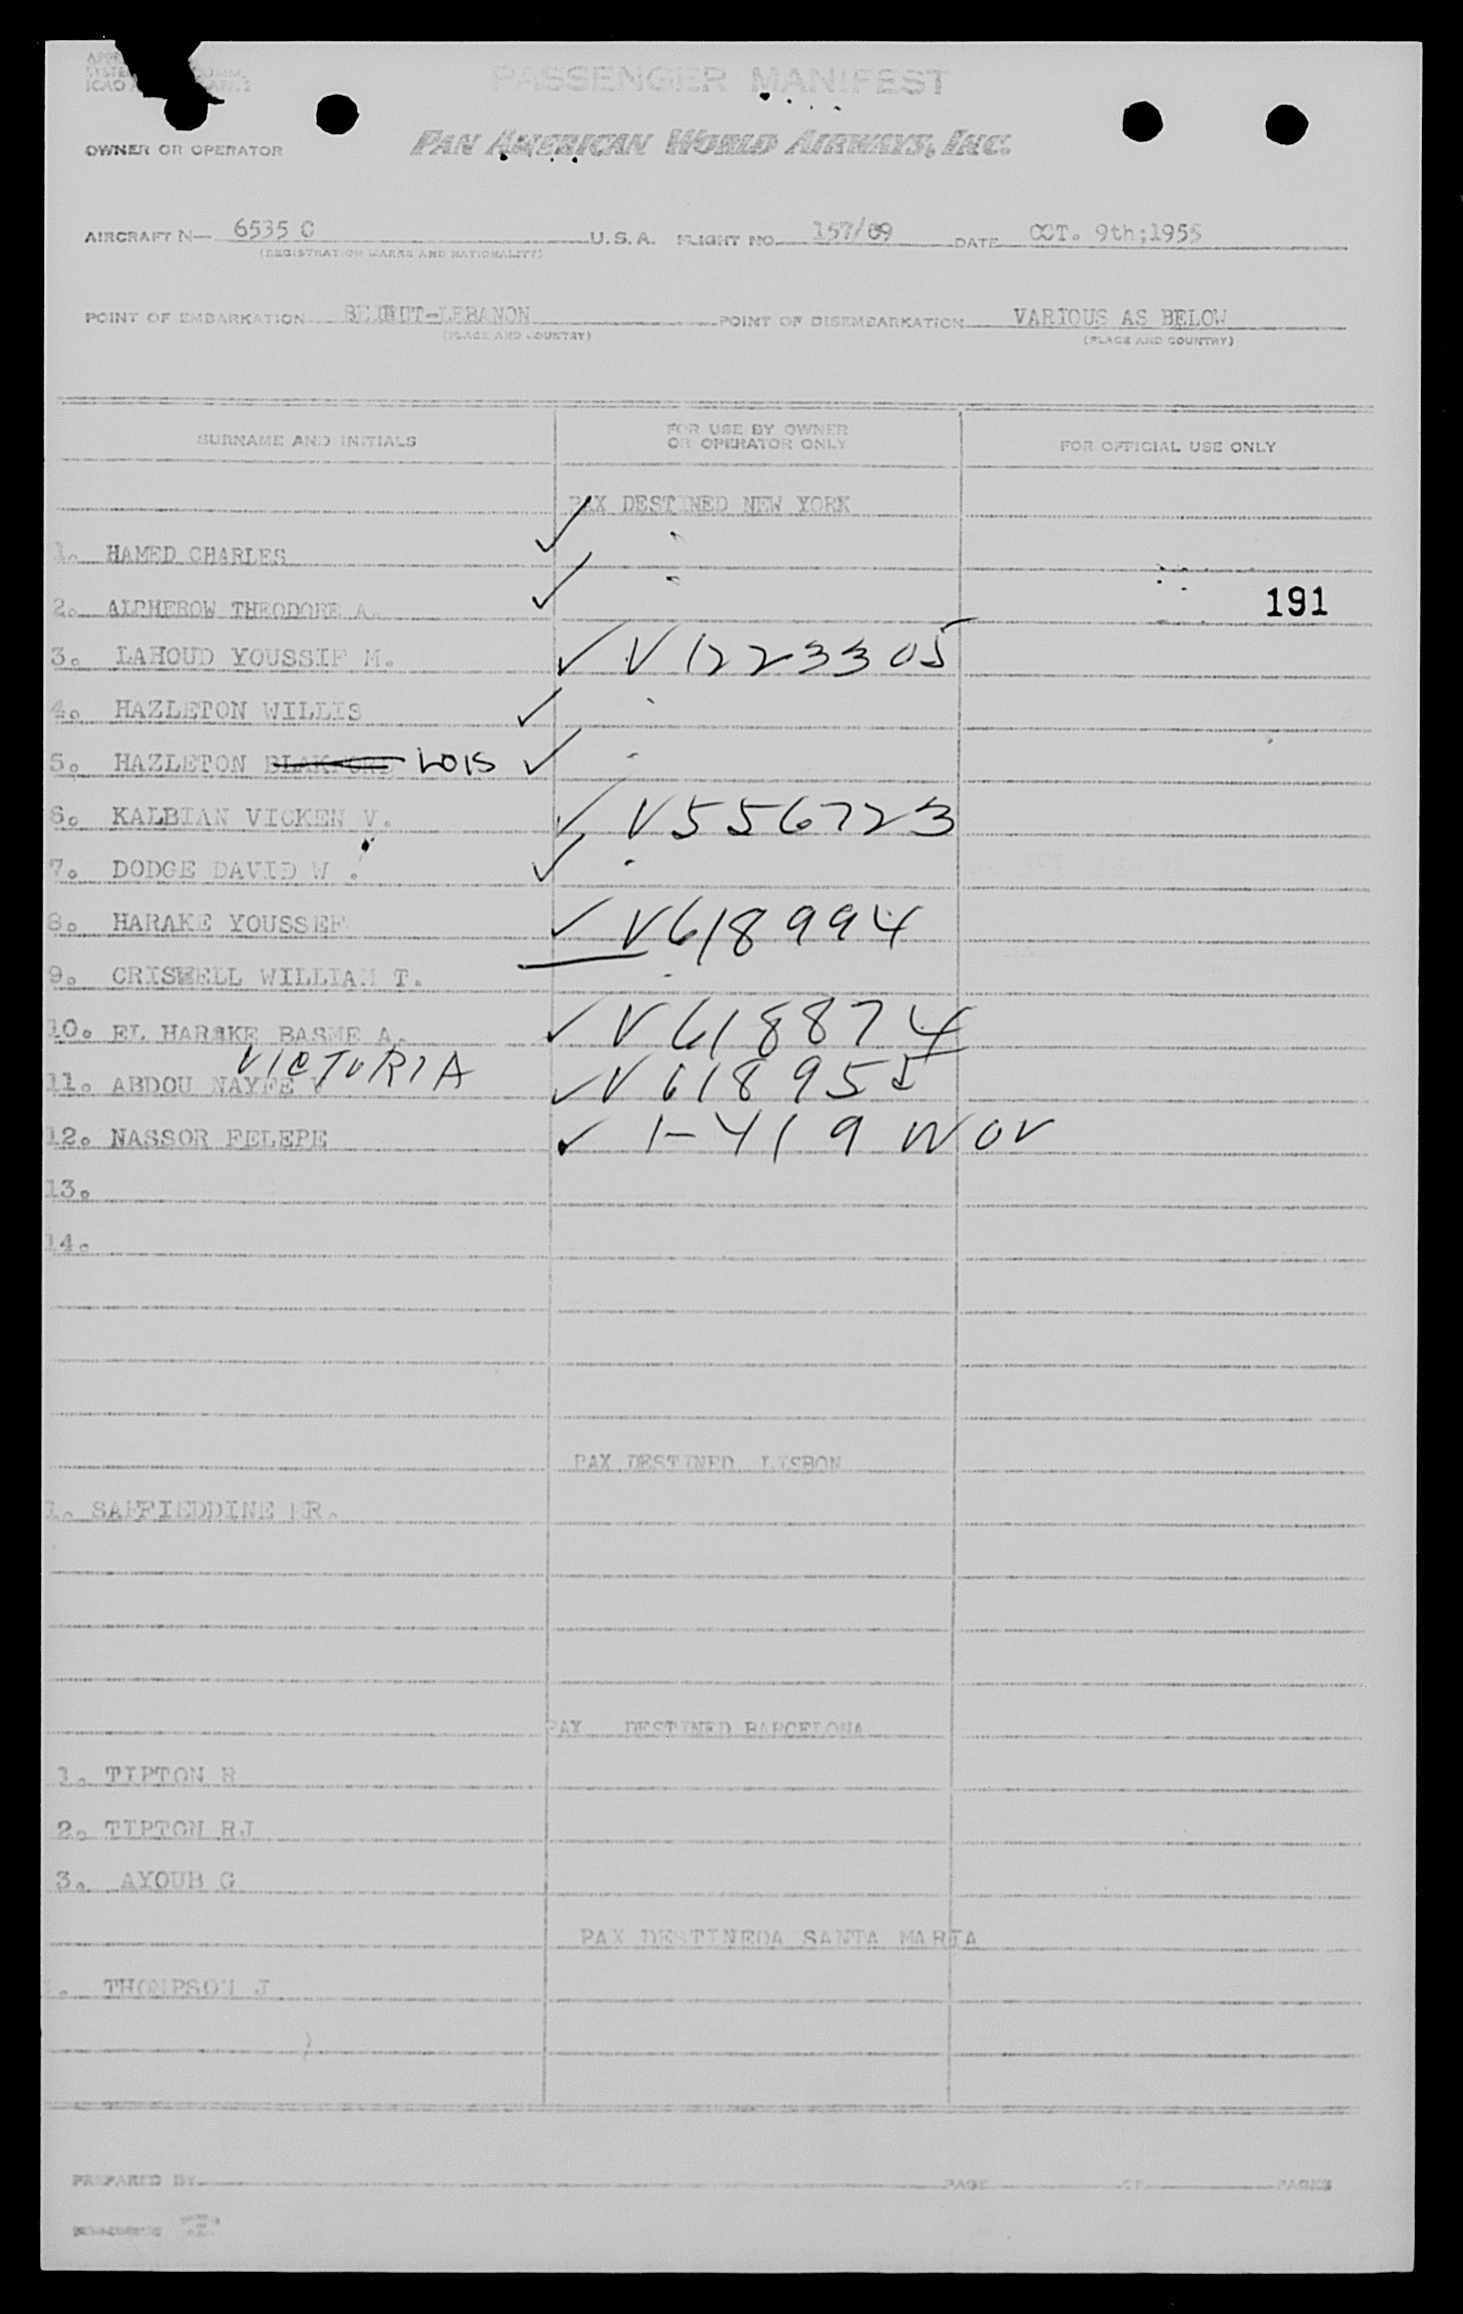 PASSENGER MANIFEST
OWNER OR OPERATOR PAN AMERICAN WORLD AIRWAYS, INC.
AIRCRAFT N— 6535 C U.S.A. FLIGHT NO. 157/09 DATE OCT. 9th;1955
(REGISTRATION MARKS AND NATIONALITY)
POINT OF EMBARKATION BEIRUT-LEBANON POINT OF DISEMBARKATION VARIOUS AS BELOW
(PLACE AND COUNTRY) (PLACE AND COUNTRY)
SURNAME AND INITIALS FOR USE BY OWNER OR OPERATOR ONLY FOR OFFICIAL USE ONLY
PAX DESTINED NEW YORK
1. HAMED CHARLES ✓
2. ALPHEROW THEODORE A. ✓ 191
3. LAHOUD YOUSSIF M. ✓ V1223305
4. HAZLETON WILLIS ✓
5. HAZLETON LOIS ✓
6. KALBIAN VICKEN V. ✓ V556723
7. DODGE DAVID W . ✓
8. HARAKE YOUSSEF ✓ V618994
9. CRISWELL WILLIAM T.
10. EL HARAKE BASME A. ✓ V618874
VICTORIA
11. ABDOU NAYFE V ✓ V618955
12. NASSOR FELEPE ✓ 1-419 NOV
13.
14.
PAX DESTINED LISBON
1. SAFFIEDDINE MR.
PAX DESTINED BARCELONA
1. TIPTON B
2. TIPTON RJ
3. AYOUB G
PAX DESTINEDA SANTA MARIA
1. THOMPSON J
PREPARED BY PAGE OF PAGES